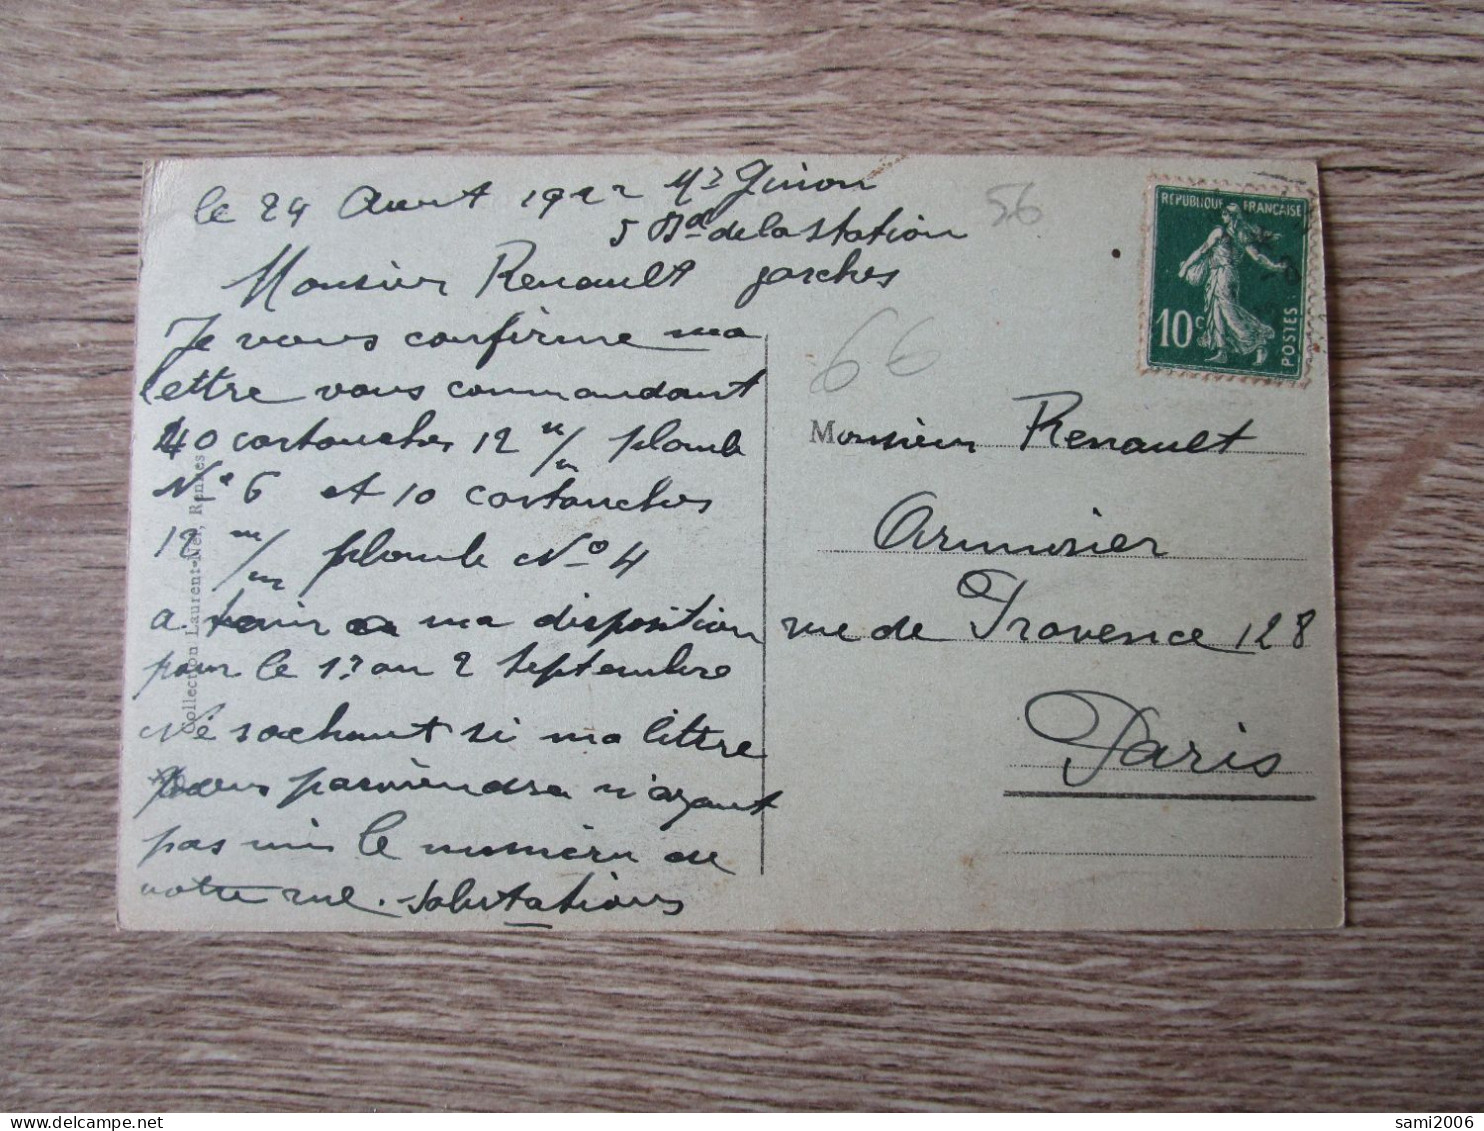 le 24 Aout 1922 Mr Ginon
5 Bd de la Station
Monsieur Renault garches
Je vous confirme ma
lettre vous commandant
40 cartouches 12 m/m plomb
N° 6 et 10 cartouches
12 m/m plomb N° 4
a tenir a ma disposition
pour le 1er au 2 Septembre
Ne sachant si ma lettre
vous parviendra n'ayant
pas mis le numéro de
votre rue. Salutations
Collection Laurent-Nel, Rennes
56
66
REPUBLIQUE FRANÇAISE
10c
POSTES
Monsieur Renault
Armurier
rue de Provence 128
Paris
sami2006